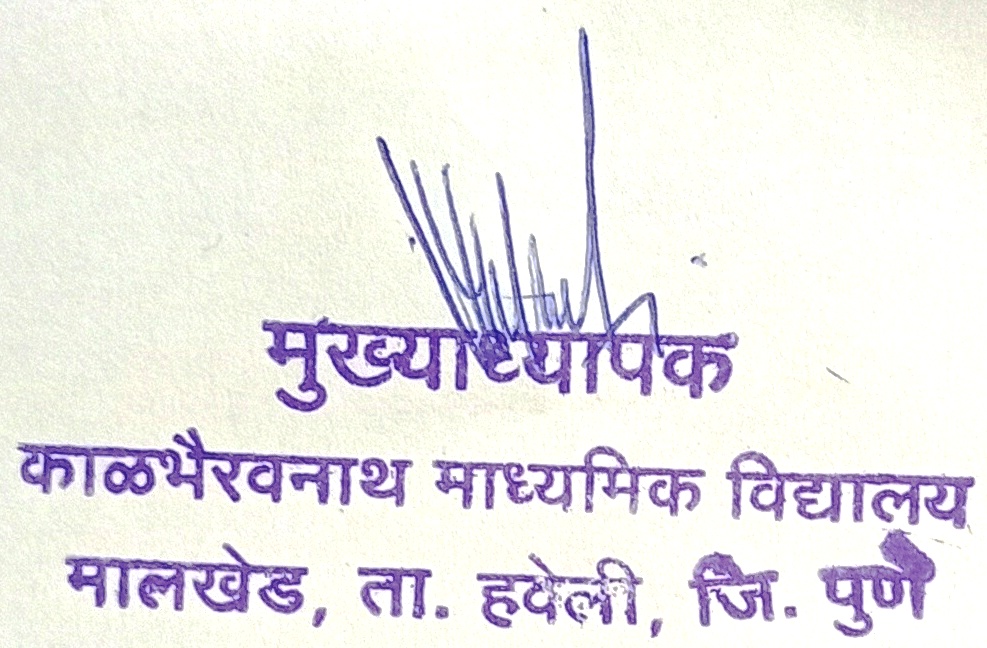 मुख्याध्यापक
काळभैरवनाथ माध्यमिक विद्यालय
मालखेड, ता. हवेली, जि. पुणे